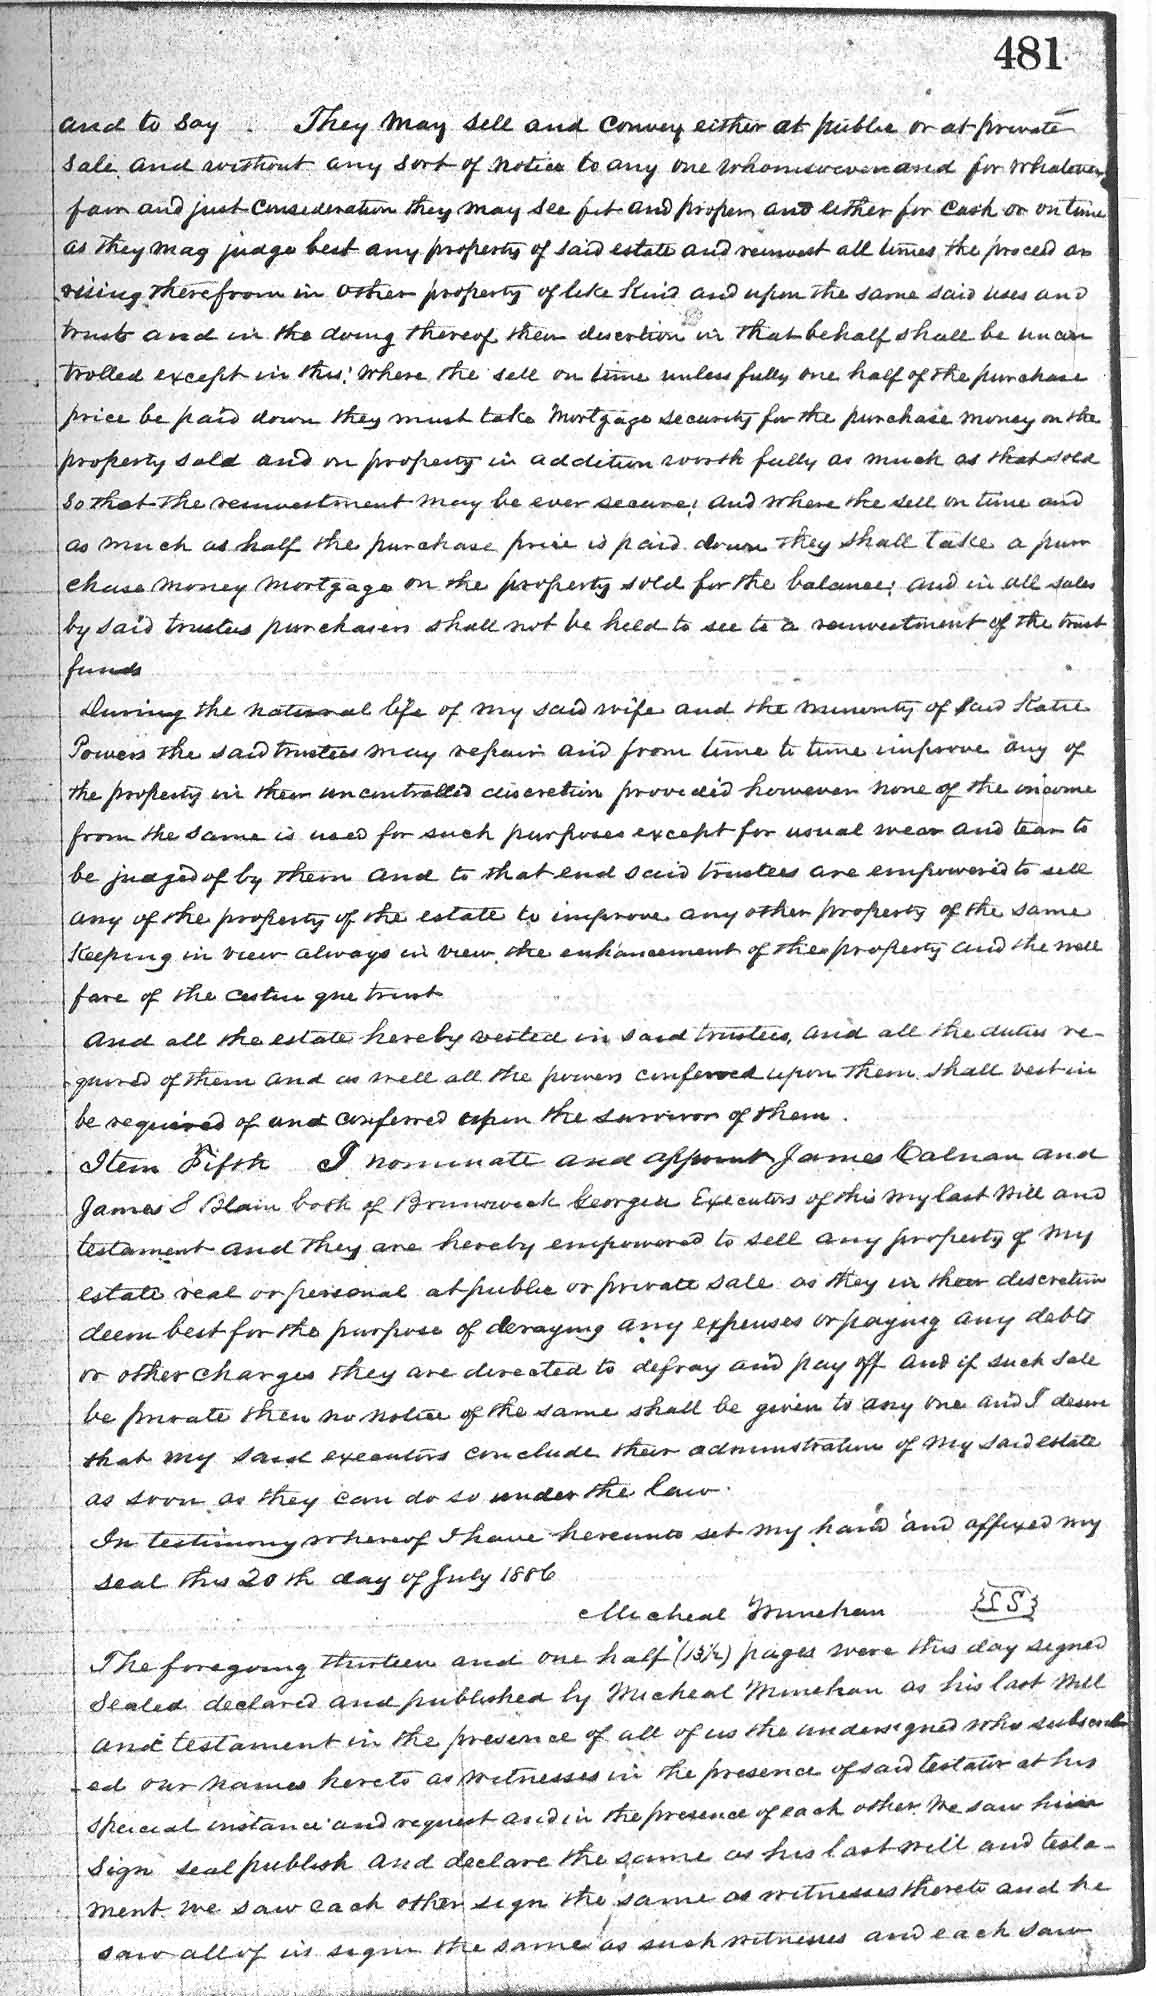 481
and to say . They may sell and convey either at public or at private
sale and without any sort of notice to any one whomsoever and for whatever
fair and just consideration they may see fit and proper and either for cash or on time
as they may judge best any property of said estate and reinvest all times the proceed ar
rising therefrom in other property of like kind and upon the same said uses and
trusts and in the doing thereof their discretion in that behalf shall be uncon
trolled except in this: Where the sell on time unless fully one half of the purchase
price be paid down they must take Mortgage security for the purchase money on the
property sold and on property in addition worth fully as much as that sold
so that the reinvestment may be ever secure; and where the sell on time and
as much as half the purchase price is paid down they shall take a pur
chase money mortgage on the property sold for the balance; and in all sales
by said trustees purchasers shall not be held to see to a reinvestment of the trust
funds
During the natural life of my said wife and the minority of said Katie
Powers the said trustees may repair and from time to time improve any of
the property in their uncontrolled discretion provided however none of the income
from the same is used for such purposes except for usual wear and tear to
be judged of by them and to that end said trustees are empowered to sell
any of the property of the estate to improve any other property of the same
Keeping in view always in view the enhancement of the property and the well
fare of the cestui que trust
And all the estate hereby vested in said trustees, and all the duties re-
quired of them and as well all the powers conferred upon them shall vest in
be required of and conferred upon the survivor of them.
Item Fifth I nominate and appoint James Calnan and
James S Blain both of Brunswick Georgia Executors of this my last Will and
testament and they are hereby empowered to sell any property of my
estate real or personal at public or private sale as they in their discretion
deem best for the purpose of deraying any expenses or paying any debts
or other charges they are directed to defray and pay off and if such sale
be private then no notice of the same shall be given to any one and I desire
that my said executors conclude their administration of my said estate
as soon as they can do so under the law.
In testimony whereof I have hereunto set my hand and affixed my
seal this 20th day of July 1886
Micheal Minehan {L S}
The foregoing thirteen and one half (13½) pages were this day signed
Sealed declared and published by Micheal Minehan as his last Will
and testament in the presence of all of us the undersigned who subscrib
ed our names hereto as witnesses in the presence of said testator at his
special instance and request and in the presence of each other. We saw him
Sign seal publish and declare the same as his last will and testa-
ment we saw each other sign the same as witnesses thereto and he
saw all of us sign the same as such witnesses and each saw